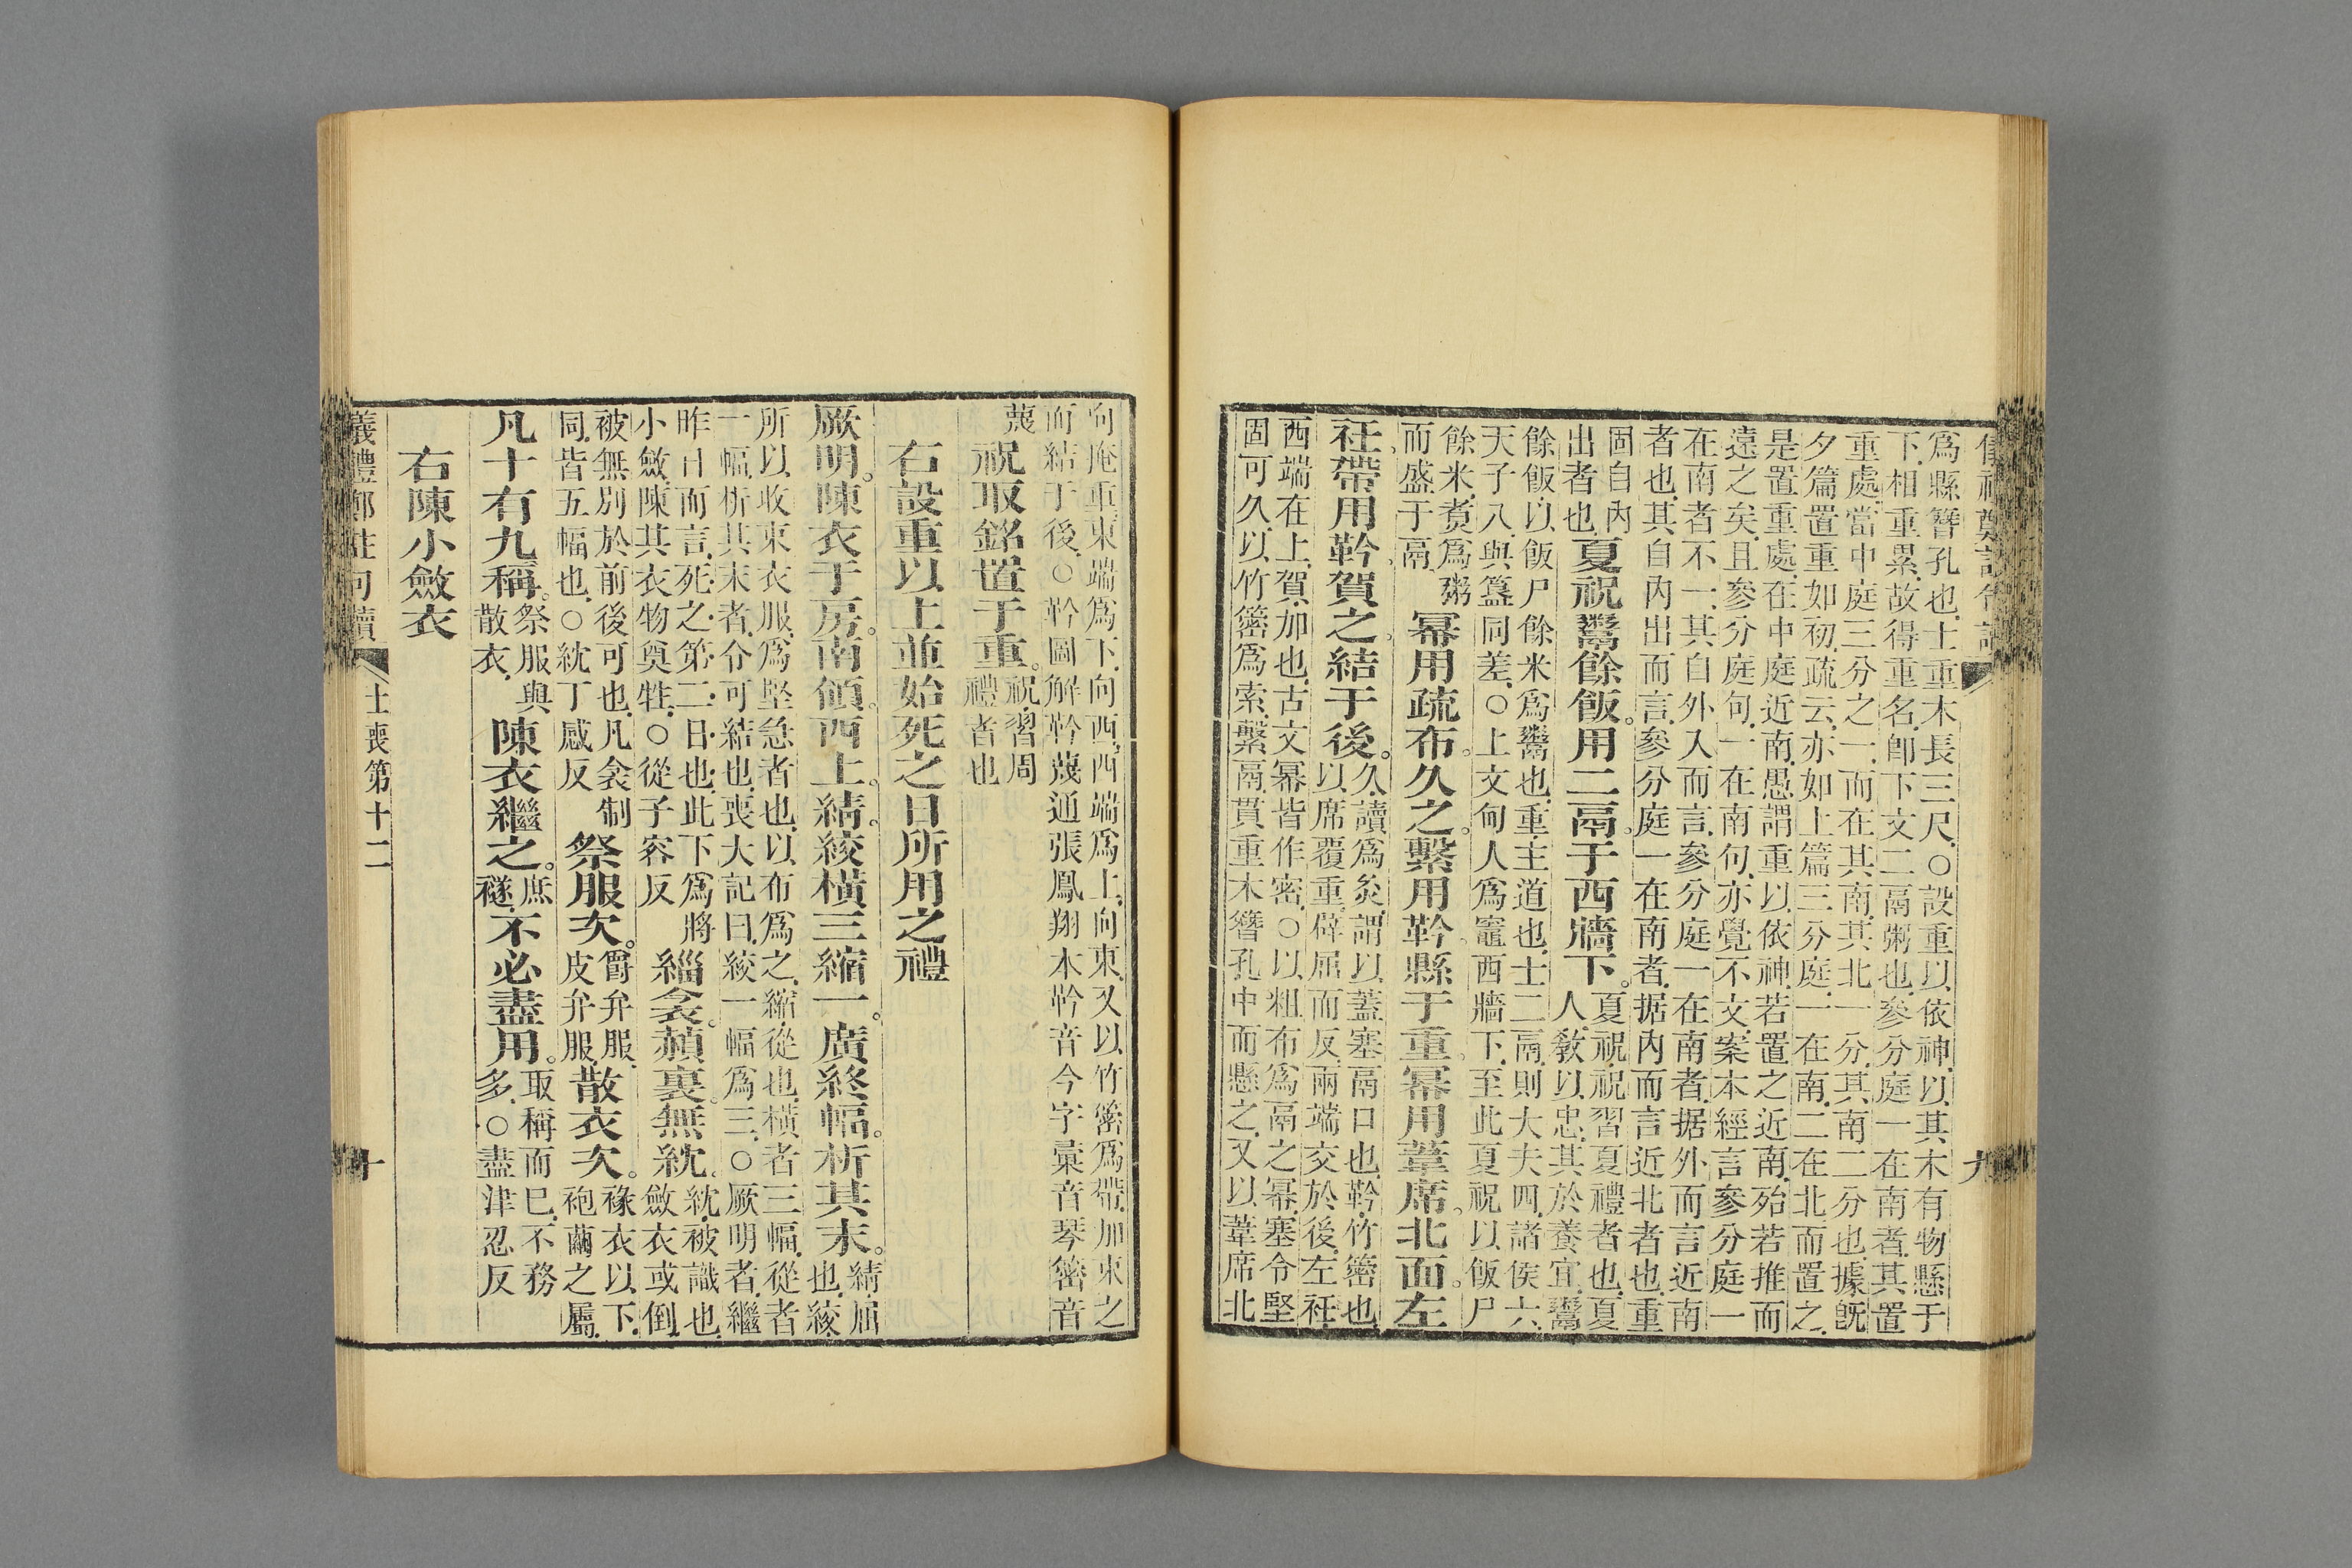 九
爲縣簪孔也士重木長三尺○設重以依神以其木有物懸于
下相重累故得重名卽下文二鬲粥也參分庭一在南者其置
重處當中庭三分之一而在其南其北一分其南二分也據旣
夕篇置重如初疏云亦如上篇三分庭一在南二在北而置之
是置重處在中庭近南愚謂重以依神若置之近南殆若推而
遠之矣且參分庭句一在南句亦覺不文案本經言參分庭一
在南者不一其自外入而言參分庭一在南者据外而言近南
者也其自內出而言參分庭一在南者据內而言近北者也重
固自內
出者也
夏祝鬻餘飯。用二鬲。于西牆下。
夏祝祝習夏禮者也夏
人教以忠其於養宜鬻
餘飯以飯尸餘米爲鬻也重主道也士二鬲則大夫四諸侯六
天子八與簋同差○上文甸人爲竈西牆下至此夏祝以飯尸
餘米煑爲粥
而盛于鬲
冪用疏布。久之。繫用靲。縣于重。冪用葦席。北面。左
衽。帶用靲。賀之。結于後。
久讀爲灸謂以蓋塞鬲口也靲竹䈼也
以席覆重辟屈而反兩端交於後左衽
西端在上賀加也古文冪皆作密○以粗布爲鬲之冪塞令堅
固可久以竹䈼爲索繫鬲貫重木簪孔中而懸之又以葦席北
向掩重東端爲下向西西端爲上向東又以竹䈼爲帶加束之
而結于後○靲圖解靲蔑通張鳳翔本靲音今字彙音琴䈼音
蔑
祝取銘置于重。
祝習周
禮者也
右設重以上並始死之日所用之禮
厥明。陳衣于房。南領。西上。綪。絞橫三縮一。廣終幅。析其末。
綪屈
也絞
所以收束衣服爲堅急者也以布爲之縮從也橫者三幅從者
一幅析其末者令可結也喪大記曰絞一幅爲三○厥明者繼
昨日而言死之第二日也此下爲將
小斂陳其衣物奠牲○從子容反
緇衾。赬裏。無紞。
紞被識也
斂衣或倒
被無別於前後可也凡衾制
同皆五幅也○紞丁感反
祭服次。
爵弁服
皮弁服
散衣次。
褖衣以下
袍繭之屬
凡十有九稱。
祭服與
散衣
陳衣繼之。
庶
襚
不必盡用。
取稱而已不務
多○盡津忍反
右陳小斂衣
儀禮鄭註句讀 士喪第十二 十